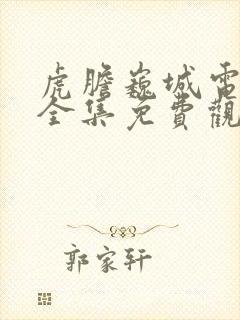 虎膽巍城電
全集免費觀
郭家轩